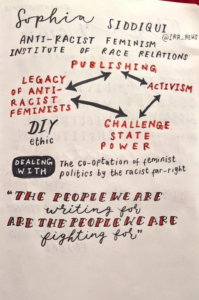 Sophia SIDDIQUI
ANTI-RACIST FEMINISM
@IRR_NEWS
INSTITUTE OF RACE RELATIONS
PUBLISHING
LEGACY
OF ANTI-
RACIST
FEMINISTS
ACTIVISM
DIY
ethic
CHALLENGE
STATE
POWER
DEALING
WITH
The co-optation of feminist
politics by the racist far-right
"THE PEOPLE WE ARE
writing for
ARE THE PEOPLE WE ARE
fighting for"